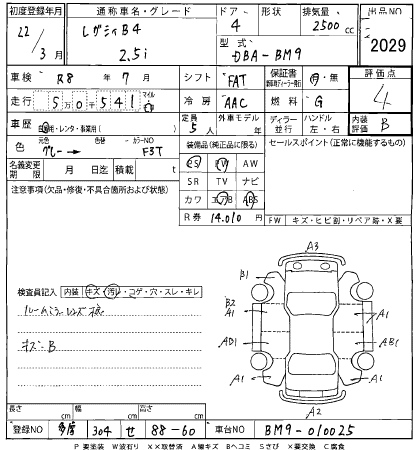 初度登録年月 通称車名・グレード ドア 形状 排気量 出品NO
22/3月 レガシィB4 2.5i 4 2500cc 2029
型式 DBA-BM9
車検 R8年7月 シフト FAT 保証書 有・無 評価点 4
走行 5万0千541 マイル km 冷房 AAC 燃料 G
車歴 自家用・レンタ・事業用( ) 定員 5人 外車モデル年 ディーラー 並行 ハンドル 左・右 内装評価 B
色 元色 グレー→ 色替 カラーNO F3T 装備品(純正品に限る) セールスポイント(正常に機能するもの)
名義変更期限 月 日迄 積載 t
CS PW AW
SR TV ナビ
注意事項(欠品・修復・不具合箇所および状態) カワ エアB ABS
R券 14,010 FW キズ・ヒビ割・リペア跡・X要
A3
B1
B2
A1 A1
検査員記入 内装 キズ・汚れ・コゲ・穴・スレ・キレ
AD1 AB1
A1 A1
A2
長さ cm 幅 cm 高さ cm
登録NO 多摩 304 せ 88-60 車台NO BM9-010025
P 要塗装 W波有り XX取替済 A線キズ Bヘコミ Sさび X要交換 C腐食